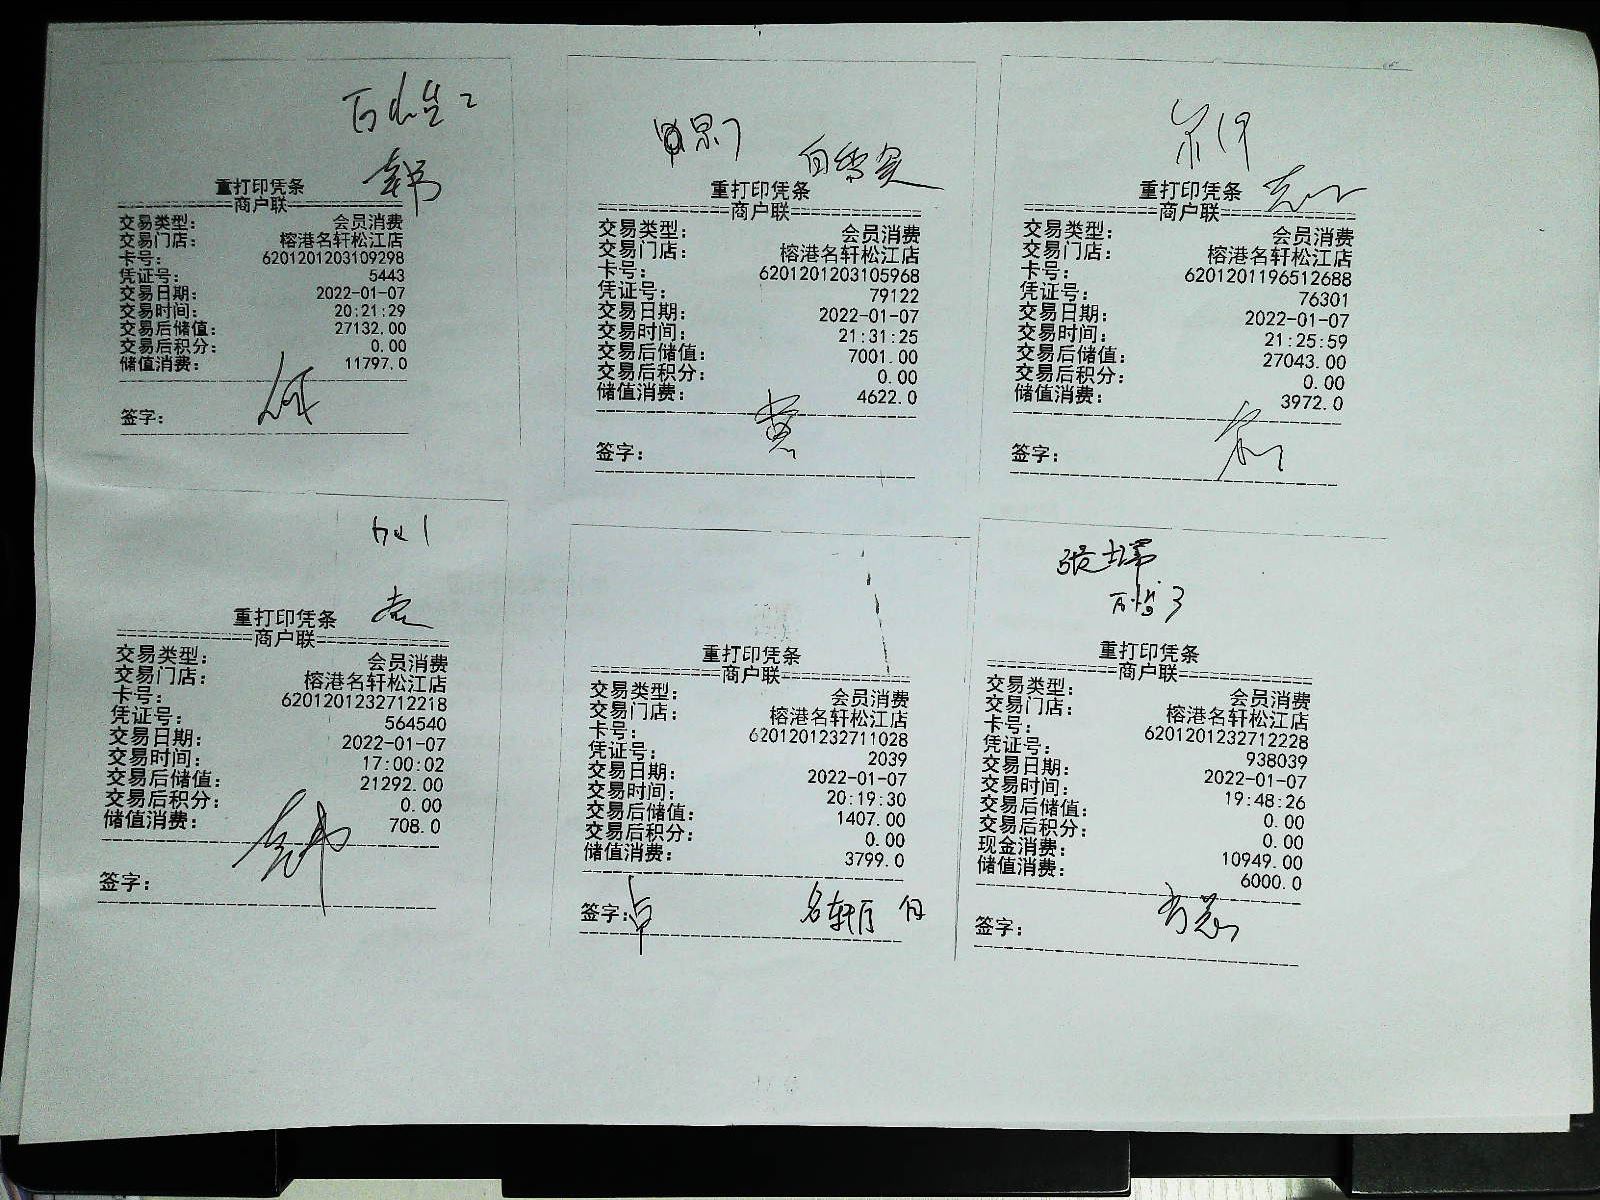 重打印凭条
==========商户联==========
交易类型: 会员消费
交易门店: 榕港名轩松江店
卡号: 6201201203109298
凭证号: 5443
交易日期: 2022-01-07
交易时间: 20:21:29
交易后储值: 27132.00
交易后积分: 0.00
储值消费: 11797.0
签字:
重打印凭条
==========商户联==========
交易类型: 会员消费
交易门店: 榕港名轩松江店
卡号: 6201201203105968
凭证号: 79122
交易日期: 2022-01-07
交易时间: 21:31:25
交易后储值: 7001.00
交易后积分: 0.00
储值消费: 4622.0
签字:
重打印凭条
==========商户联==========
交易类型: 会员消费
交易门店: 榕港名轩松江店
卡号: 6201201196512688
凭证号: 76301
交易日期: 2022-01-07
交易时间: 21:25:59
交易后储值: 27043.00
交易后积分: 0.00
储值消费: 3972.0
签字:
重打印凭条
==========商户联==========
交易类型: 会员消费
交易门店: 榕港名轩松江店
卡号: 6201201232712218
凭证号: 564540
交易日期: 2022-01-07
交易时间: 17:00:02
交易后储值: 21292.00
交易后积分: 0.00
储值消费: 708.0
签字:
重打印凭条
==========商户联==========
交易类型: 会员消费
交易门店: 榕港名轩松江店
卡号: 6201201232711028
凭证号: 2039
交易日期: 2022-01-07
交易时间: 20:19:30
交易后储值: 1407.00
交易后积分: 0.00
储值消费: 3799.0
签字: 名轩厅
重打印凭条
==========商户联==========
交易类型: 会员消费
交易门店: 榕港名轩松江店
卡号: 6201201232712228
凭证号: 938039
交易日期: 2022-01-07
交易时间: 19:48:26
交易后储值: 0.00
交易后积分: 0.00
现金消费: 10949.00
储值消费: 6000.0
签字: